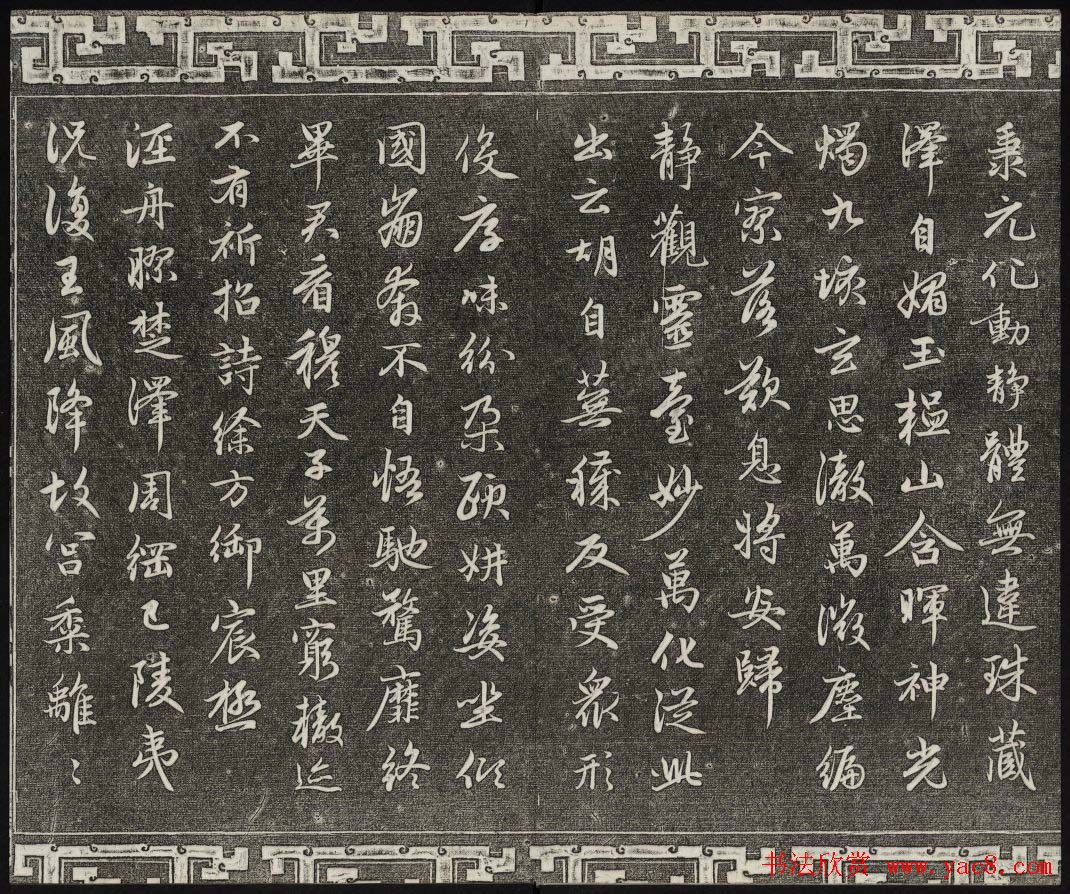 秉元化動靜體無違珠藏
澤自媚玉韞山含暉神光
燭九垓玄思澈萬微塵編
今寥落歎息將安歸
靜觀靈臺妙萬化從此
出云胡自蕪穢反受眾形
役厚味紛朵頤妍姿坐傾
國崩奔不自悟馳騖靡終
畢君看穆天子萬里窮轍迹
不有祈招詩徐方御宸極
涇舟膠楚澤周綱已陵夷
況復王風降故宮黍離〻
书法欣赏 www.yac8.com